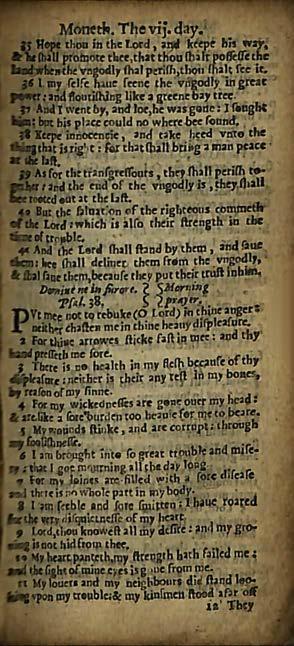 Moneth. The vij. day.
35 Hope thou in the Lord, and keepe his way,
& he shall promote thee, that thou shalt possesse the
land when the vngodly shal perish, thou shalt see it.
36 I my selfe haue seene the vngodly in great
power: and flourishing like a greene bay tree.
37 And I went by, and loe, he was gone: I sought
him; but his place could no where bee found.
38 Keepe innocencie, and take heed vnto the
thing that is right: for that shall bring a man peace
at the last.
39 As for the transgressours, they shall perish to-
gether: and the end of the vngodly is, they shall
bee rooted out at the last.
40 But the saluation of the righteous commeth
of the Lord: which is also their strength in the
time of trouble.
41 And the Lord shall stand by them, and saue
them: hee shall deliuer them from the vngodly,
& shal saue them, because they put their trust in him.
Domine ne in furore. Morning
Psal. 38. prayer.
PVt mee not to rebuke (O Lord) in thine anger:
neither chasten me in thine heauy displeasure.
2 For thine arrowes sticke fast in mee: and thy
hand presseth me sore.
3 There is no health in my flesh because of thy
displeasure: neither is their any rest in my bones,
by reason of my sinne.
4 For my wickednesses are gone ouer my head:
& are like a sore burden too heauie for me to beare.
5 My wounds stinke, and are corrupt: through
my foolishnesse.
6 I am brought into so great trouble and mise-
ry: that I goe mourning all the day long
7 For my loines are filled with a sore disease
and there is no whole part in my body.
8 I am feeble and sore smitten: I haue roared
for the very disquietnesse of my heart.
9 Lord, thou knowest all my desire: and my gro-
ning is not hid from thee.
10 My heart panteth, my strength hath failed me:
and the sight of mine eyes is gone from me.
11 My louers and my neighbours did stand loo-
king vpon my trouble: & my kinsmen stood afar off
12 They